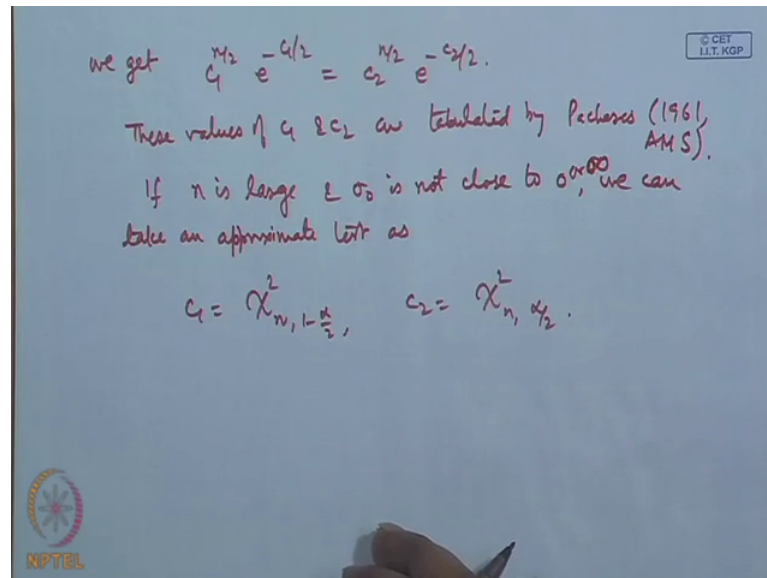 © CET
I.I.T. KGP
we get c₁^{n/2} e^{-c₁/2} = c₂^{n/2} e^{-c₂/2}.
These values of c₁ & c₂ are tabulated by Pachares (1961, AMS).
If n is large & σ₀ is not close to 0 or ∞, we can
take an approximate test as
c₁ = χ²_{n, 1-α/2}, c₂ = χ²_{n, α/2}.
NPTEL